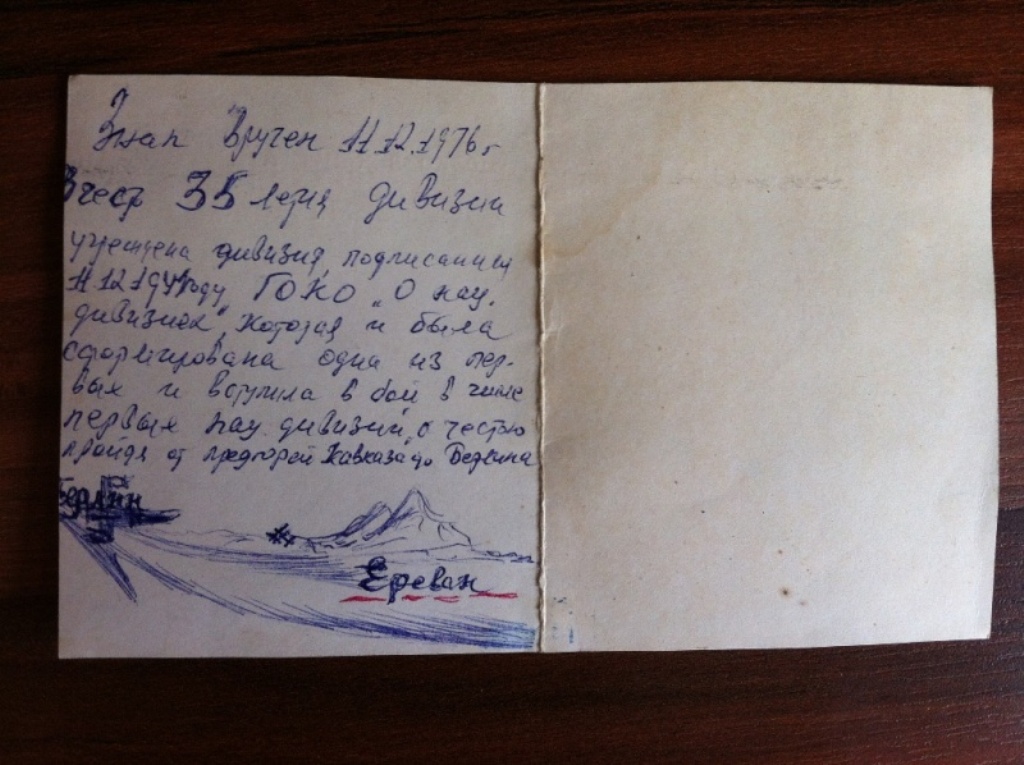 Знак вручен 11.12.1976 г
В честь 35 летия дивизии
учреждена дивизия, подписанием
11.12.1941 году ГОКО „О нац.
дивизиях", которая и была
сформирована одна из пер-
вых и вступила в бой в числе
первых нац. дивизий, с честью
пройдя от предгорей Кавказа до Берлина
Берлин
Ереван